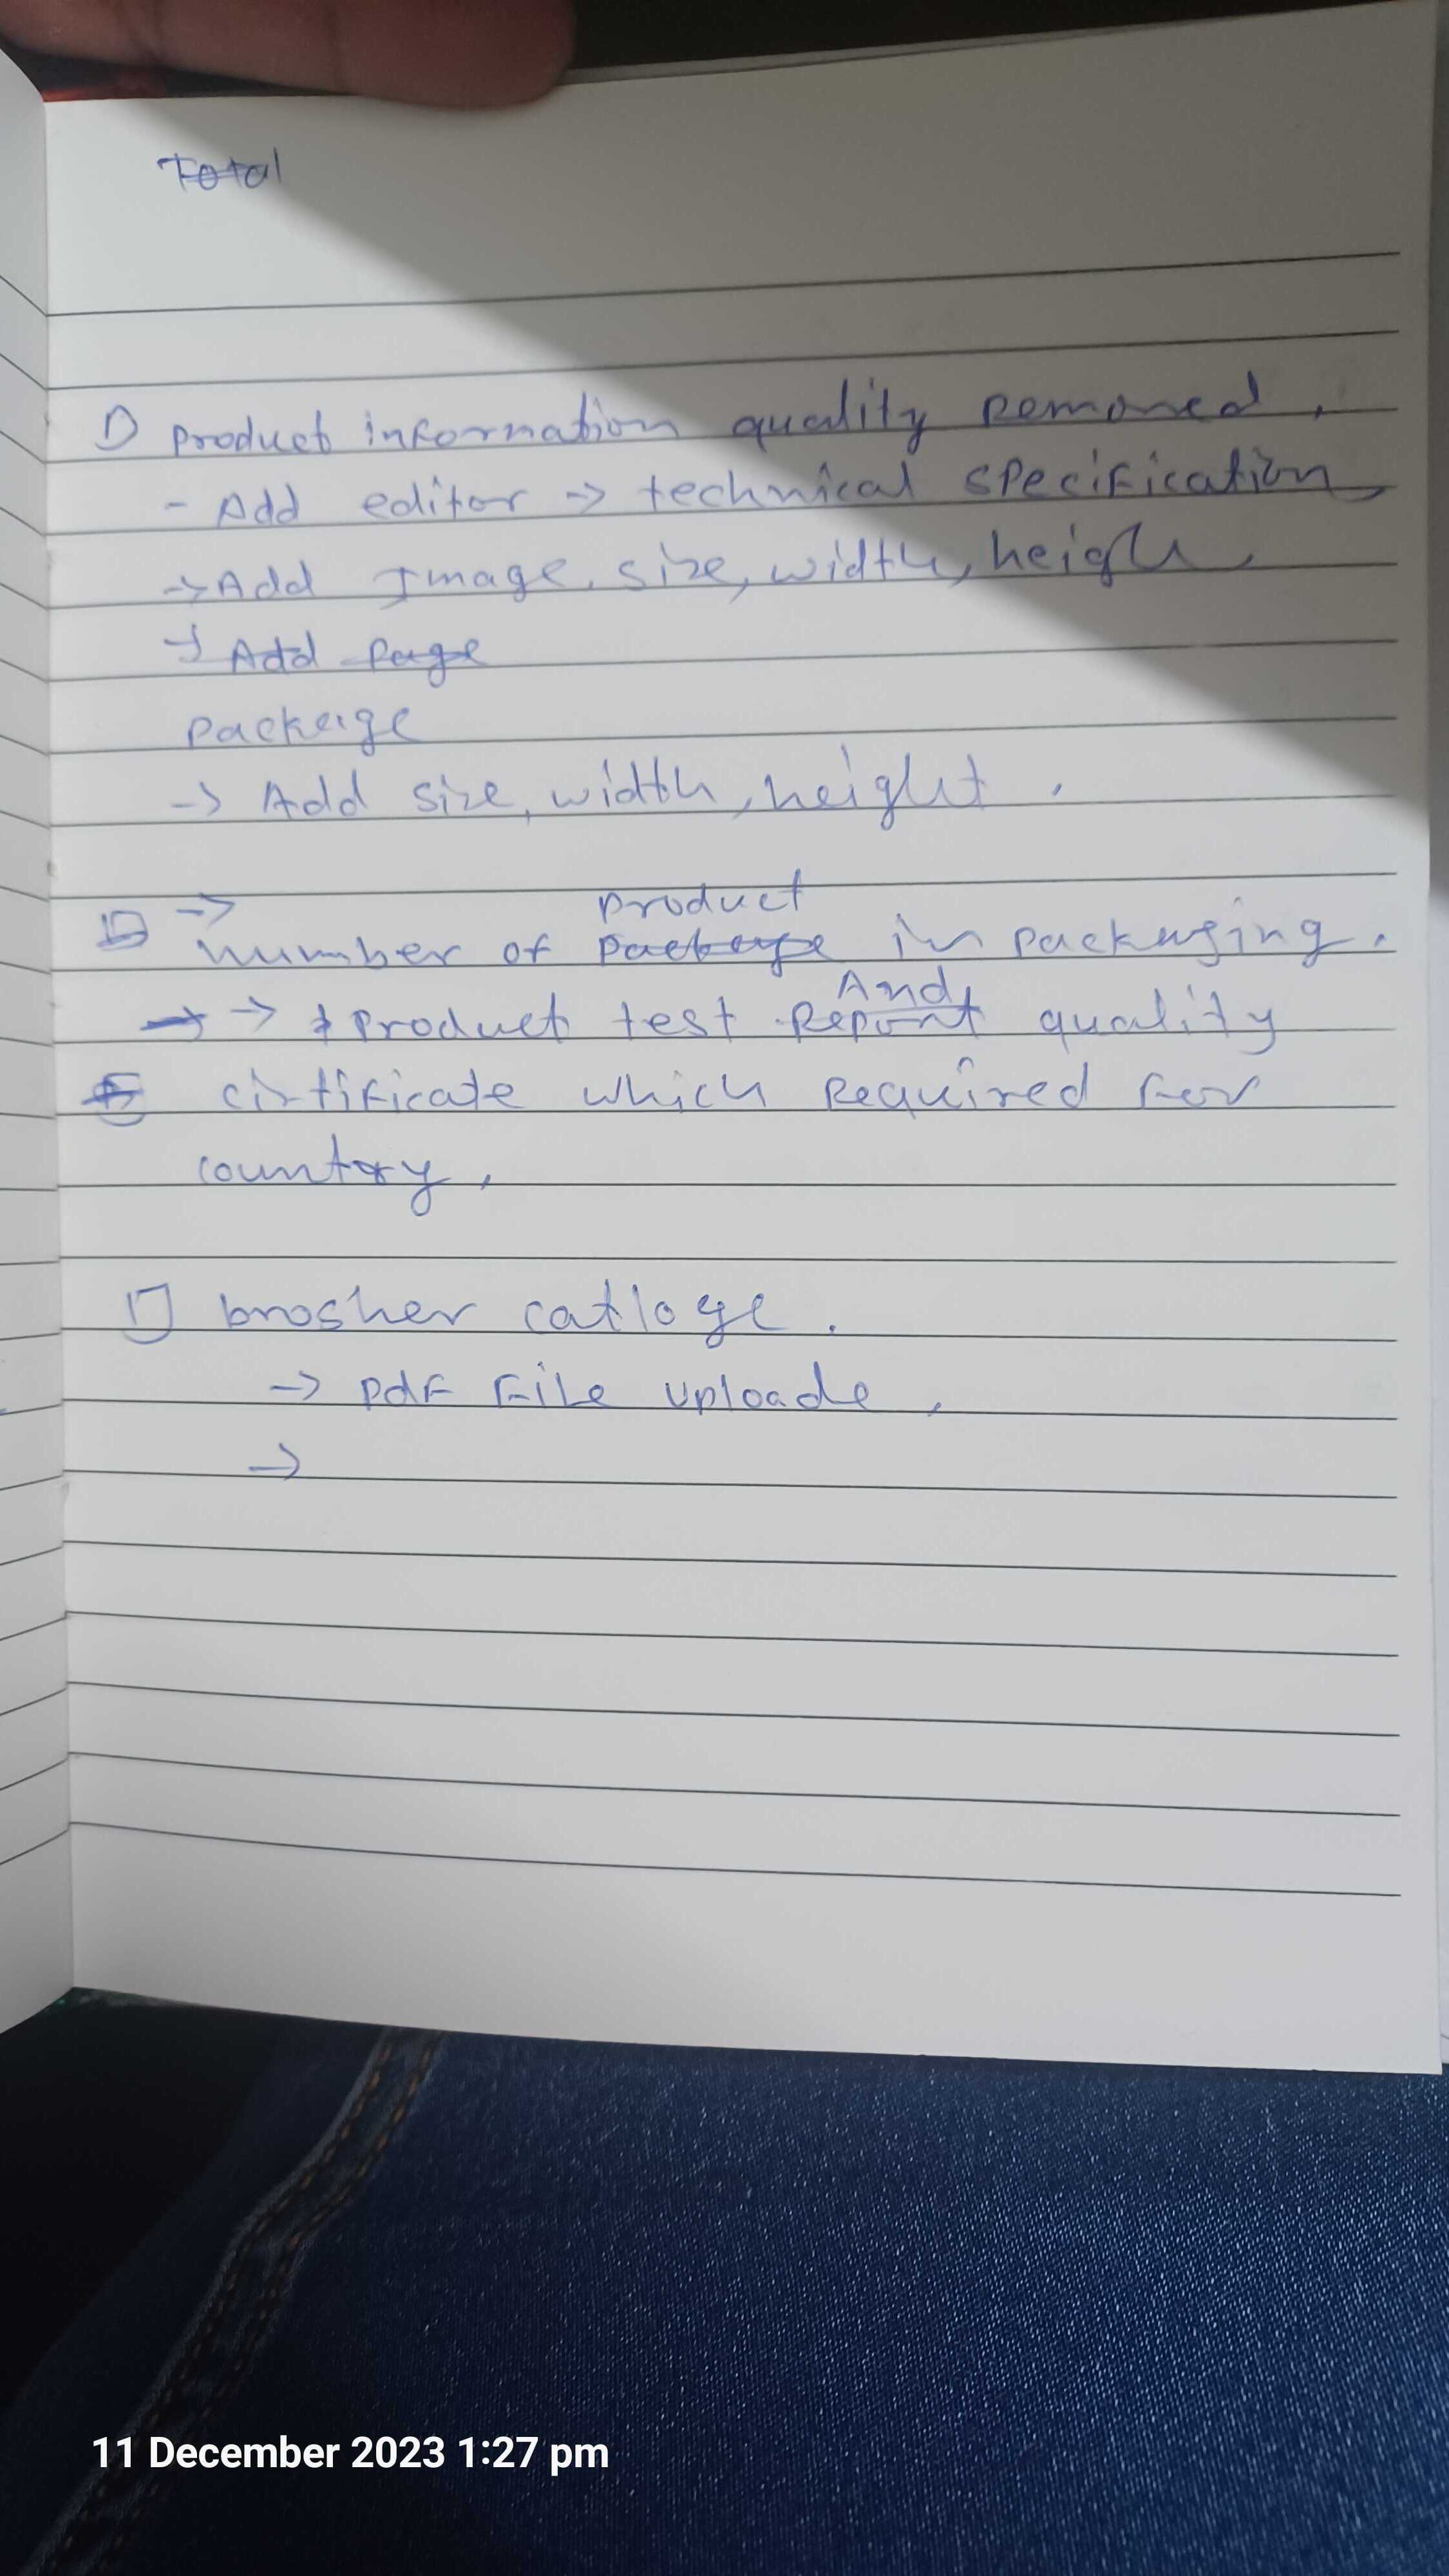 Total
1) product information quality removed.
- Add editor -> technical specification,
-> Add Image, size, width, heigh,
-> Add Page
Package
-> Add size, width, height.
->
product
number of package in packaging.
And
-> -> product test Report quality
cirtificate which Required for
country,
1] brosher catloge.
-> pdf File uploade,
->
11 December 2023 1:27 pm